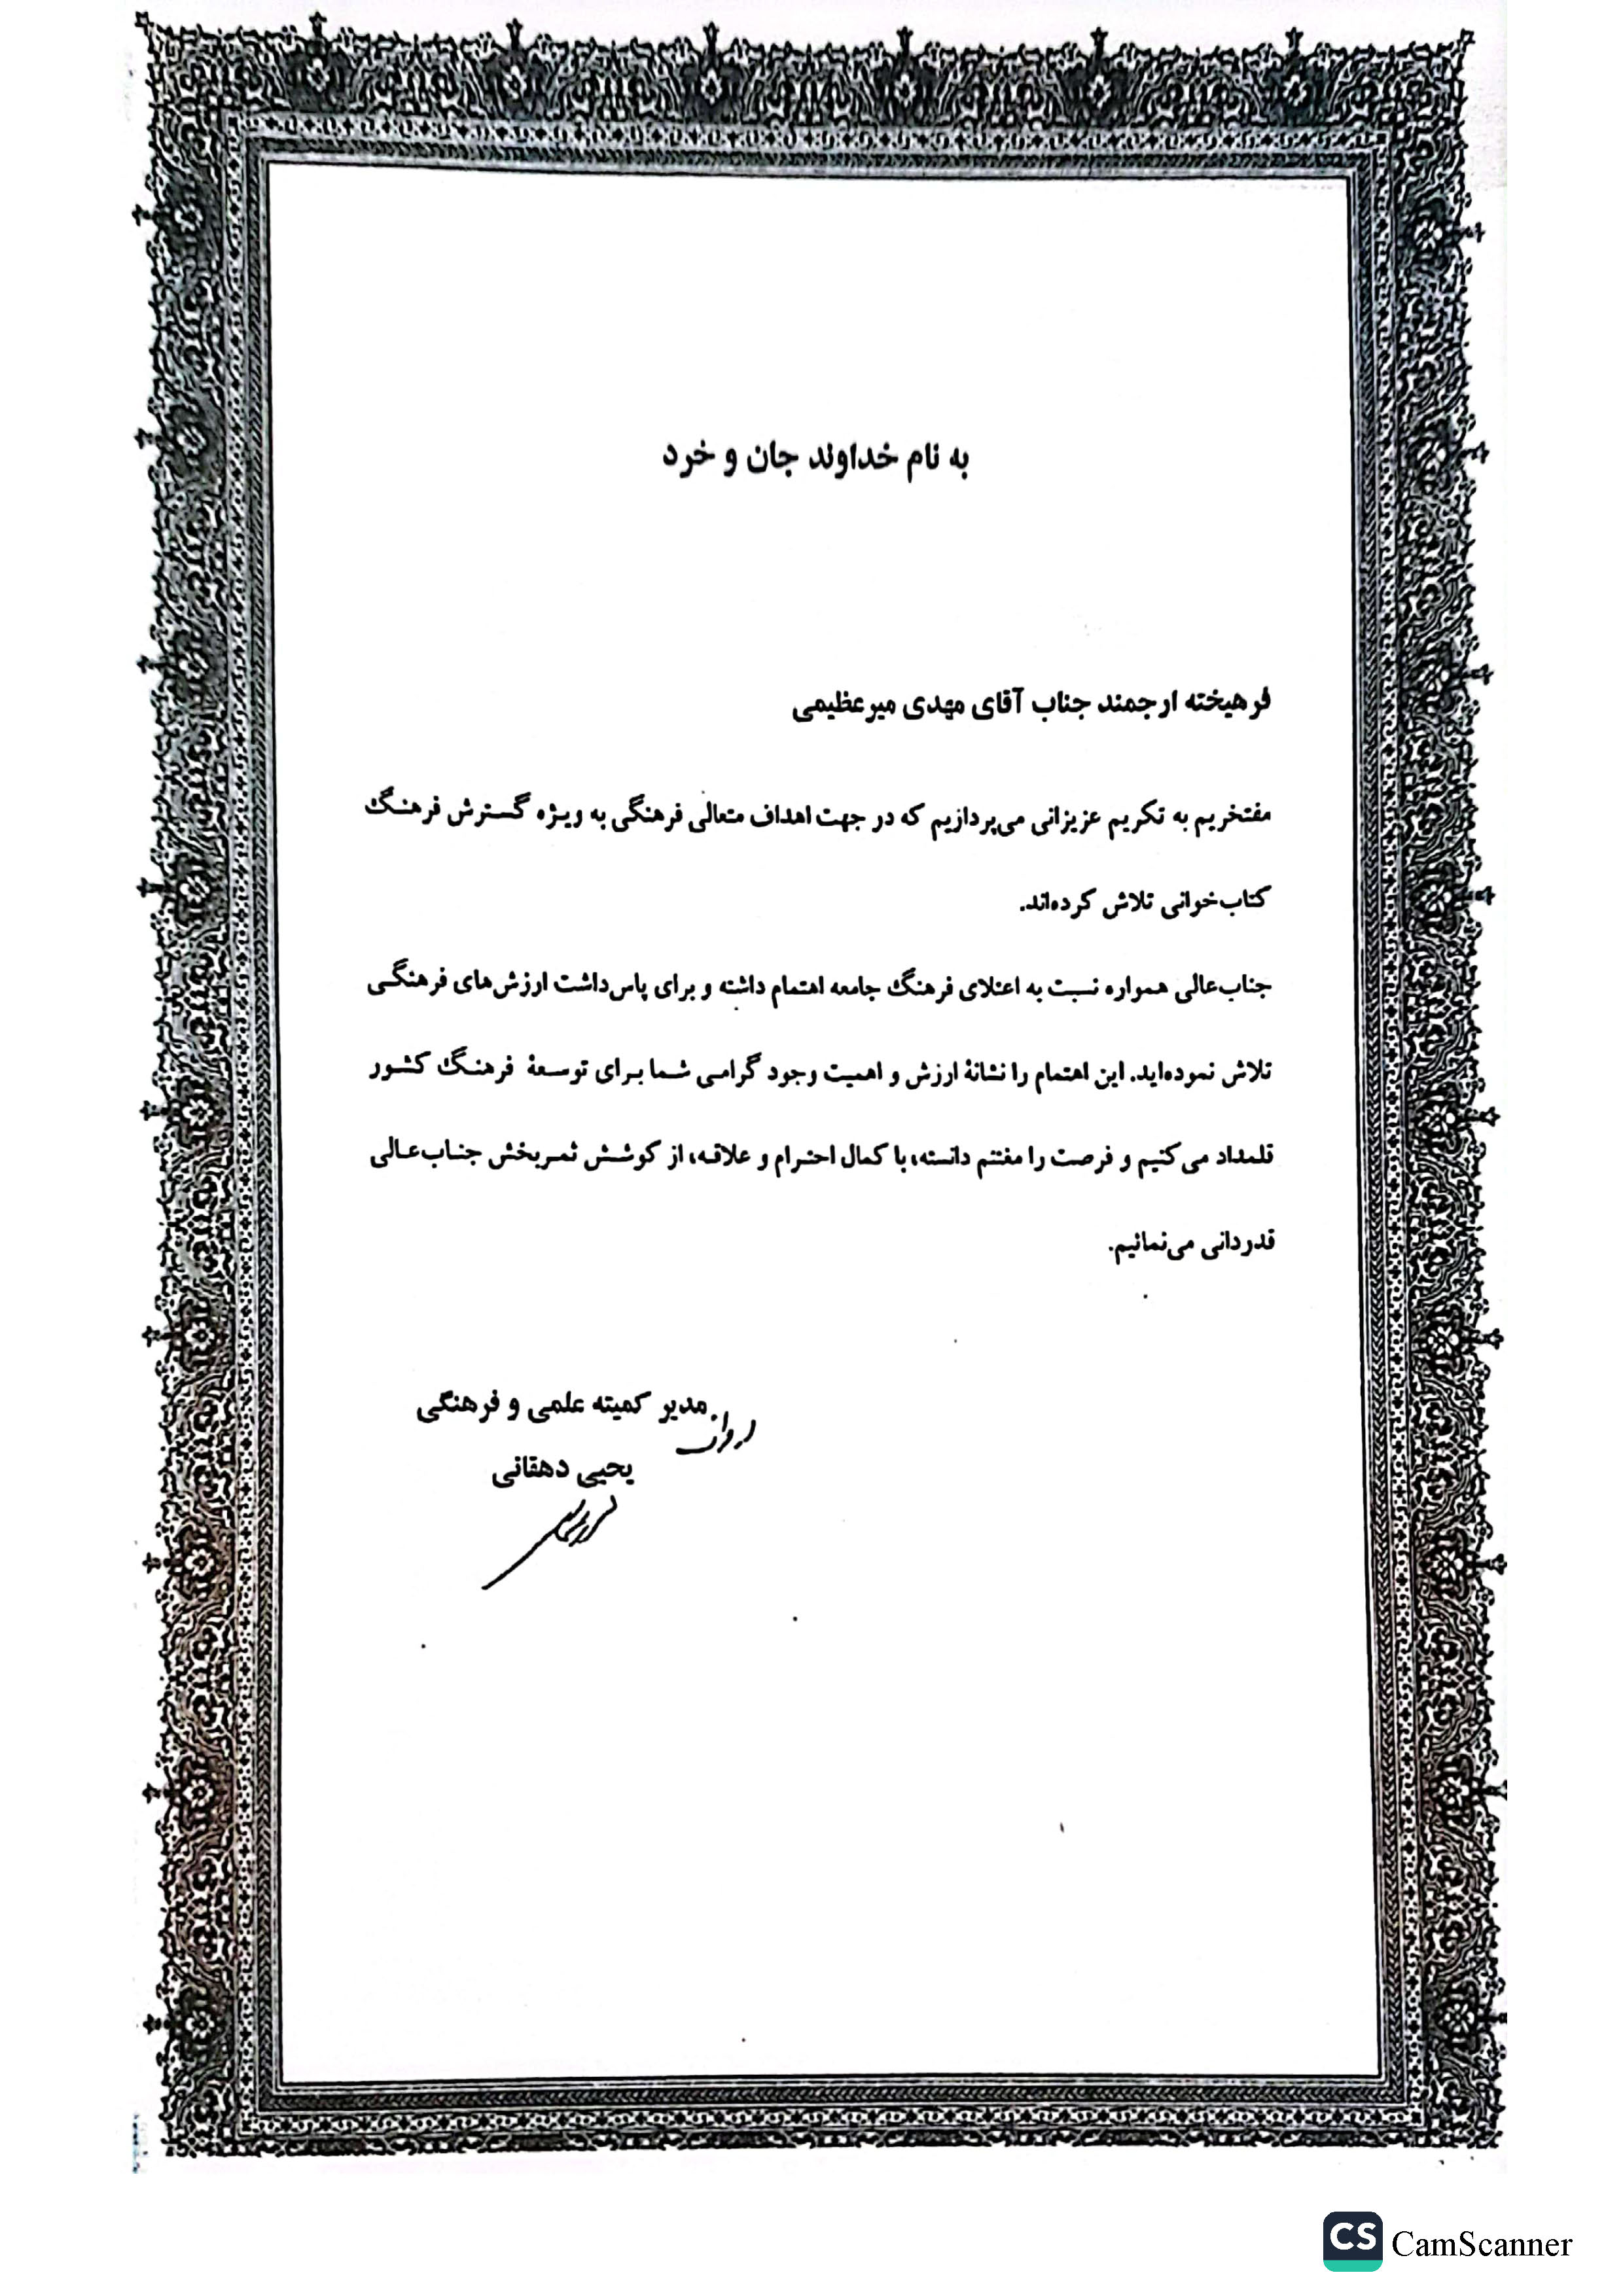 به نام خداوند جان و خرد
فرهیخته ارجمند جناب آقای مهدی میرعظیمی
مفتخریم به تکریم عزیزانی می‌پردازیم که در جهت اهداف متعالی فرهنگی به ویژه گسترش فرهنگ
کتاب‌خوانی تلاش کرده‌اند.
جناب‌عالی همواره نسبت به اعتلای فرهنگ جامعه اهتمام داشته و برای پاس‌داشت ارزش‌های فرهنگی
تلاش نموده‌اید. این اهتمام را نشانهٔ ارزش و اهمیت وجود گرامی شما برای توسعهٔ فرهنگ کشور
قلمداد می‌کنیم و فرصت را مغتنم دانسته، با کمال احترام و علاقه، از کوشش ثمربخش جناب‌عالی
قدردانی می‌نمائیم.
مدیر کمیته علمی و فرهنگی
یحیی دهقانی
CS CamScanner